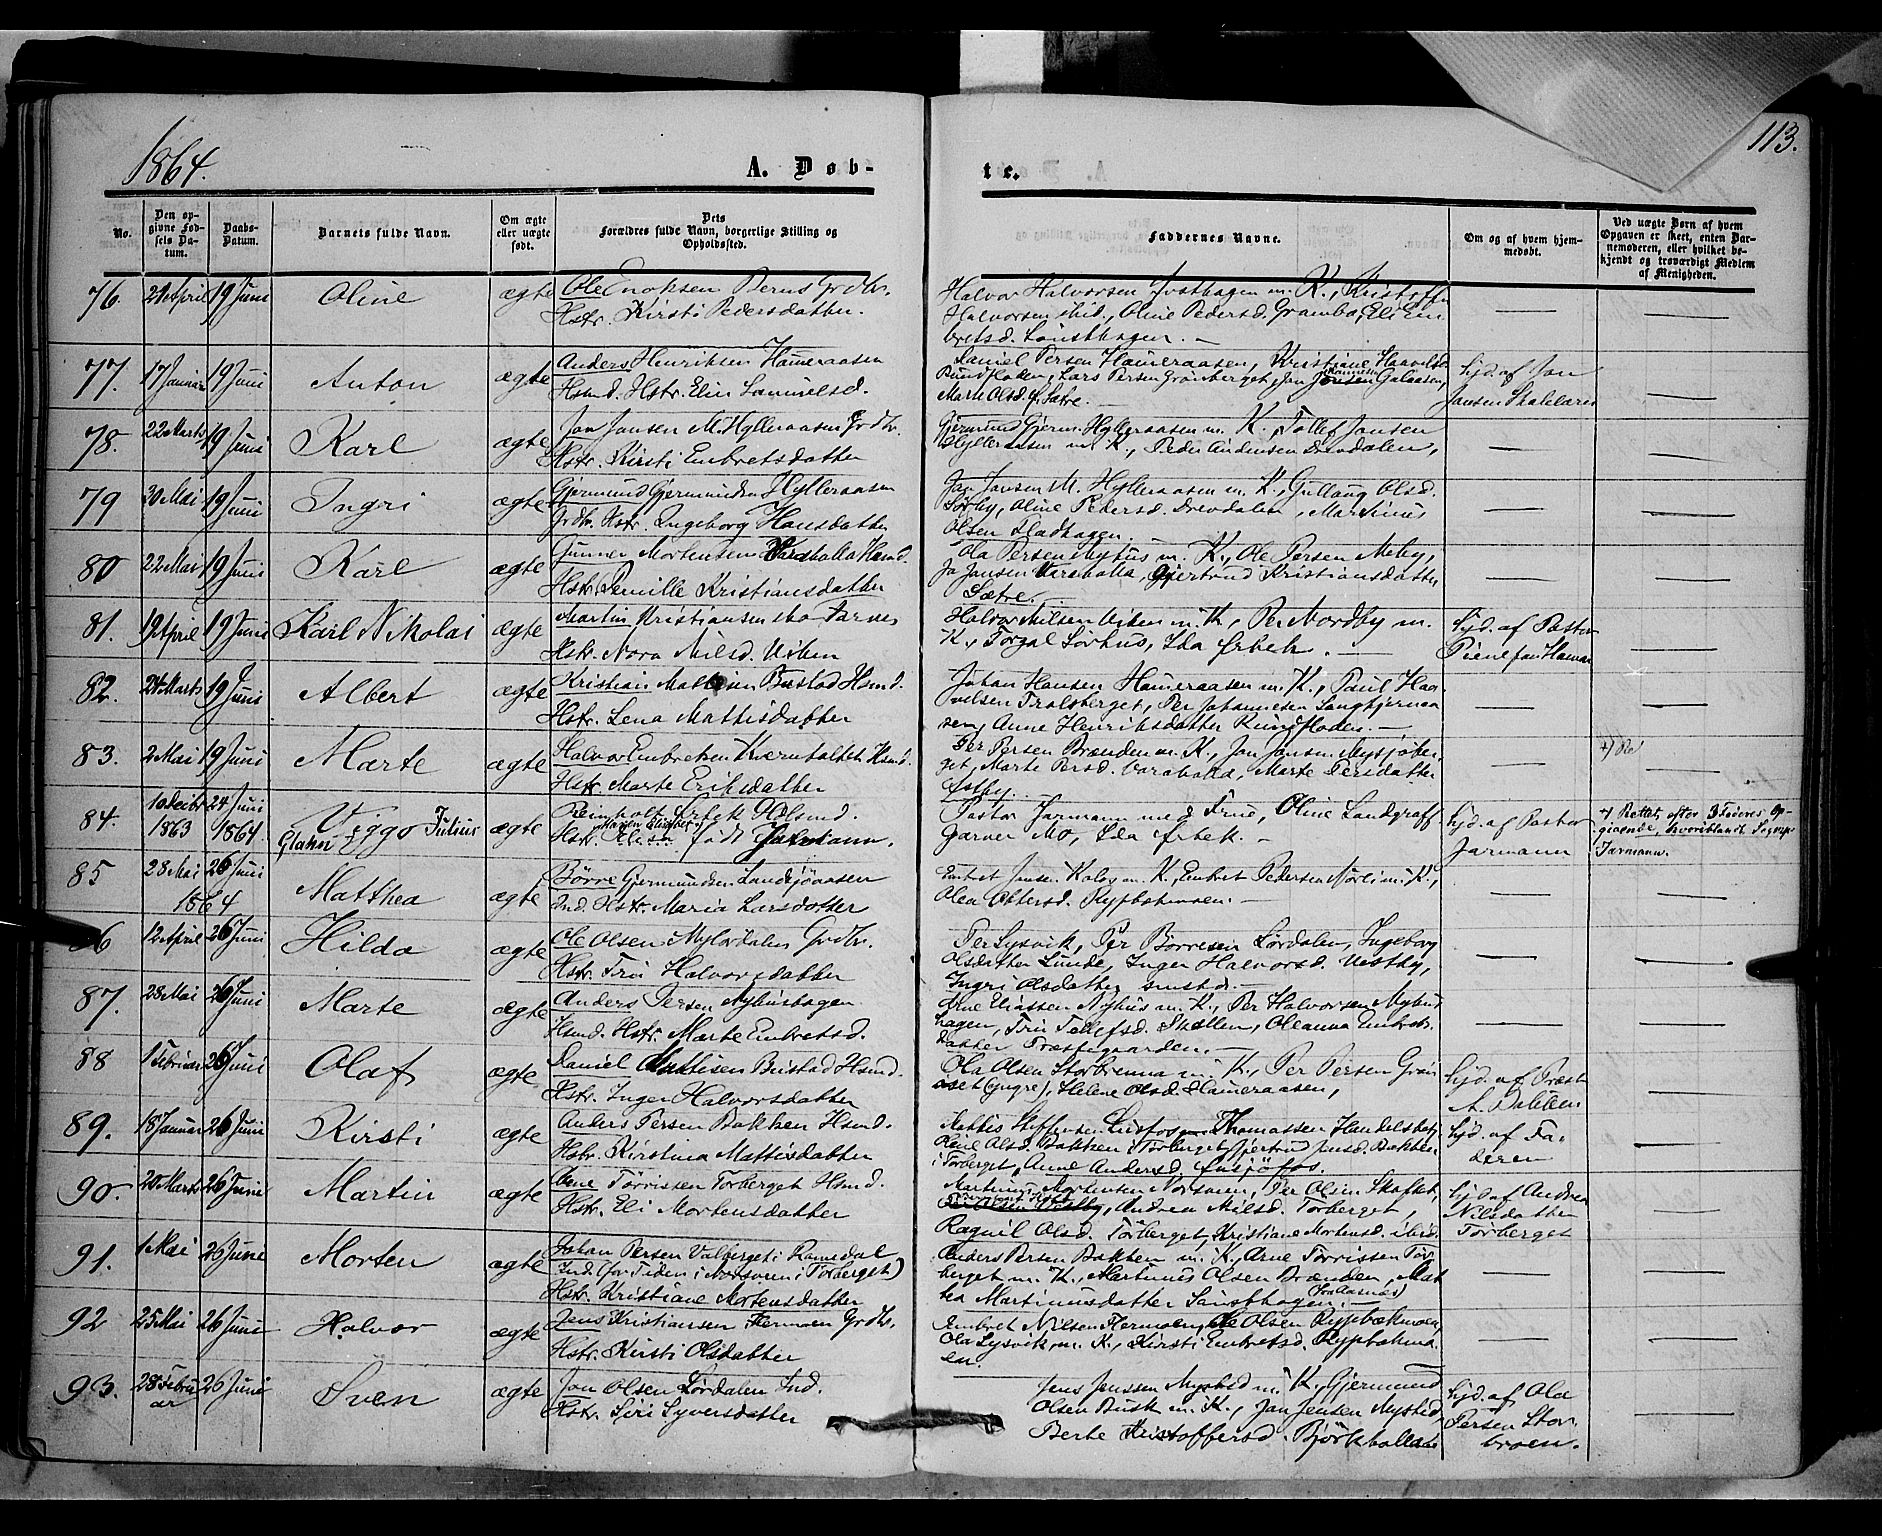 1864.
A. Døb-
te.
113.
No.
Den op-
givne Fød-
sels Da-
tum.
Daabs-
Datum.
Barnets fulde Navn.
Om ægte
eller uægte
født.
Dets
Forældres fulde Navn, borgerlige Stilling og
Opholdssted.
Faddernes Navne.
Om og af hvem hjem-
medøbt.
Ved uægte Børn af hvem
Opgaven er skeet, enten Bar-
nemoderen, eller hvilket be-
kjendt og troværdigt Medlem
af Menigheden.
76. 21 April 19 Juni Oline ægte Ole Enoksen Berns Grdbr.
Hstr. Kirsti Pedersdatter.
Halvor Halvorsen Justhagen m. K., Kristoffer
Halvorsen ibid., Oline Pedersd. Grambo, Eli Em
bretsd. Lonsthagen. —
77. 17 Januar 19 Juni Anton ægte Anders Henriksen Hameraasen
Hsmd. Hstr. Elin Samuelsd.
Daniel Persen Hameraasen, Kristiane Haavelsd.
Rundfloden, Lars Persen Gronberget, Jan Jonsen Galaasen,
Marte Olsd. Sætre. —
hjd. af Jan
Jansen Skakkares
78. 22 Marts 19 Juni Karl ægte Jan Jansen M. Hylleraasen Grdbr.
Hstr. Kirsti Embretsdatter
Gjermund Gjerm. Hylleraasen m. K., Tollef Jansen
Hylleraasen m K., Peder Andersen Drevdalen,
79 30 Mai 19 Juni Ingri ægte Gjermund Gjermundsen Hylleraasen
Grdbr. Hstr. Ingeborg Hansdatter
Jan Jansen M. Hylleraasen m. K., Gullaug Olsd.
Sørby, Oline Pedersd. Drevdalen, Martinus
Olsen Stadhagen. —
80 22 Mai 19 Juni Karl ægte Gunner Mortensen Varaholla Hsmd.
Hstr. Pernille Kristiansdatter
Ola Persen Nyhus m. K., Ole Persen Moby,
Jo Jansen Varaholla, Gjertrud Kristiansdatter
Sætre. —
81. 19 April 19 Juni Karl Nikolai ægte Martin Kristiansen Mo Varnes
Hstr. Nora Nilsd. Viken
Halvor Nilsen Viken m. K., Per Nordby m.
K., Torgal Sørhus, Ida Ørbek. —
hjd. af Pastor
Piene fra Hamar
82. 24 Marts 19 Juni Albert ægte Kristian Matisen Bustad Hsmd.
Hstr. Lena Mattisdatter
Johan Hansen Hameraasen m. K., Paul Haa-
velsen Tralsberget, Per Johannesen Langkjernaa
sen, Anne Henriksdatter Rundfloden. —
83. 2 Mai 19 Juni Marte ægte Halvor Embretsen Kverntoltet Hsmd.
Hstr. Marte Eriksdatter
Per Persen Brænden m. K., Jan Jansen Mysjøber-
get, Marte Persd. Varaholla, Marte Persdatter
Østby. —
84. 10 Decbr 1863 24 Juni 1864. Viggo Julius Glahn ægte Reinholt Ørbek Hsmd.
Hstr. Maren Elisabet født Jarmann.
Pastor Jarmann med Frue, Oline Landgraff
Garver Mo, Ida Ørbek. —
hjd. af Pastor
Jarmann
+) Rettet, efter 3 Fadderes Op-
givende, hvoriblandt Sognepr.
Jarmann.
85 28 Mai 1864 26 Juni Matthea ægte Børre Gjermundsen Landsjøaasen
Ind. Hstr. Maria Larsdatter
Embret Jensen Kolos m. K., Embret Pedersen Nørli m. K.,
Olea Østersd. Rypbakmoen. —
86 12 April 26 Juni Hilda ægte Ole Olsen Nylordalen Grdbr.
Hstr. Trui Halvorsdatter
Per Lysvik, Per Børresen Lørdalen, Ingeborg
Olsdatter Lunde, Inger Halvorsd. Vestby,
Ingri Olsdatter smstd. —
87. 28 Mai 26 Juni Marte ægte Anders Persen Nyhushagen
Hsmd. Hstr. Marte Embretsd.
Arne Eliassen Nyhus m. K., Per Halvorsen Nyhus
hagen, Trui Tollefsd. Skallen, Oleanna Embrets-
datter Træffigaarden. —
88 1 Februar 26 Juni Olaf ægte Daniel Mattisen Bustad Hsmd.
Hstr. Inger Halvorsdatter
Ola Olsen Storbrenna m. K., Per Persen Grøn
oset (yngre), Helene Olsd. Hameraasen,
hjd. af Præst
A. Dalseen
89. 18 Januar 26 Juni Kirsti ægte Anders Persen Bakken Hsmd.
Hstr. Kirstina Mattisdatter
Mattis Steffensen Lutfos Thomassen Handelsbetj.
Oline Olsd. Bakken i Torberget, Gjertrud Jensd. Bakken
i Torberget, Anne Andersd. Ensjøfos.
hjd. af Fa-
deren
90. 20 Marts 26 Juni Martin ægte Arne Törrissen Torberget Hsmd.
Hstr. Eli Mortensdatter
Martinus Mortensen Norsveen, Per Olsen Skaftet,
Andrea Nilsd. Torberget,
Ragnil Olsd. Torberget, Kristiane Mortensd. ibid.
hjd. af Andrea
Nilsdatter
Torberget
91. 1 Mai 26 Juni Morten ægte Johan Persen Valberget i Ramedal
Ind. (for Tiden i Norsveen i Torberget)
Hstr. Kristiane Mortensdatter
Anders Persen Bakken m. K., Arne Törrissen Tor-
berget m. K., Martinus Olsen Brænden, Mat
tea Martinusdatter Lonsthagen. —
92 25 Mai 26 Juni Halvor ægte Jens Kristiansen Flermoen Grdbr.
Hstr. Kirsti Olsdatter
Embret Nilsen Flermoen, Ole Olsen Rypbækmoen,
Ola Lysvik, m. K., Kirsti Embretsd. Rypbakmo-
en.
93. 28 Febru
ar 26 Juni Sven ægte Jon Olsen Lørdalen Ind.
Hstr. Siri Syversdatter
Jens Jenssen Nysted m. K., Gjermund
Olsen Busk m. K., Jan Jensen Nysted,
Berte Kristoffersd. Björkhollaas
hjd. af Ola
Persen Stor
broen.